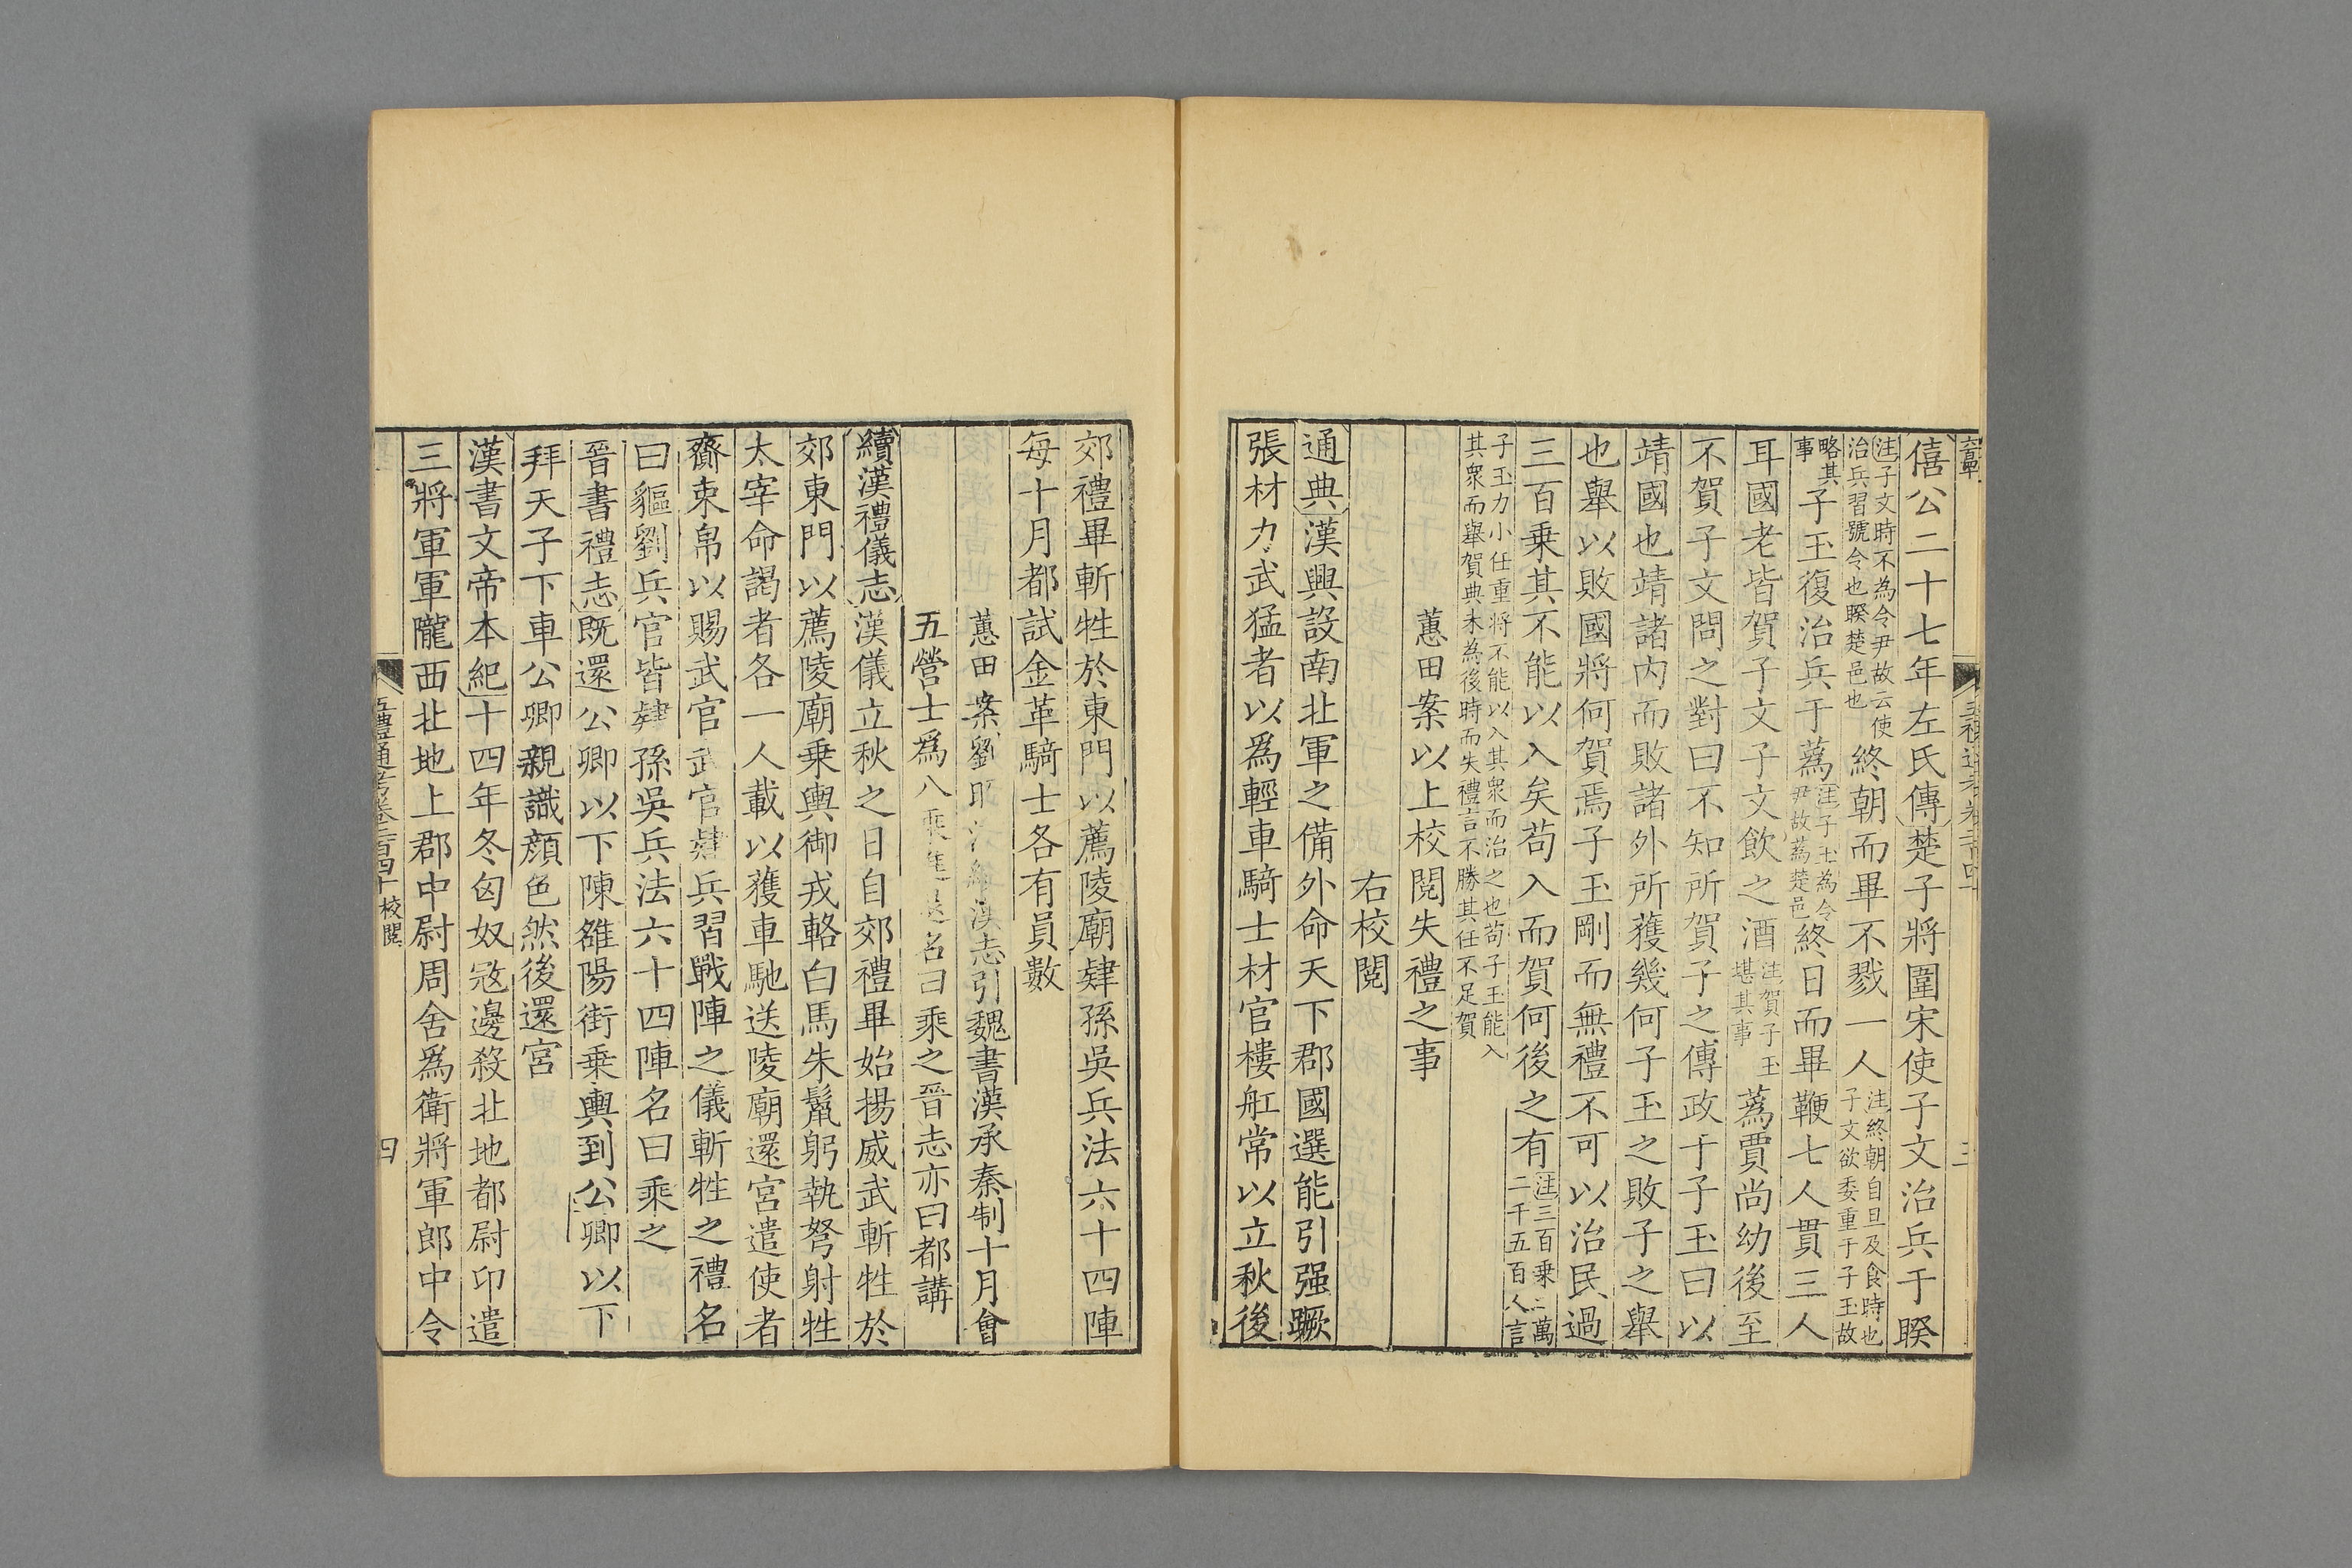 僖公二十七年左氏傳楚子將圍宋使子文治兵于睽
注子文時不為令尹故云使
治兵習號令也睽楚邑也
終朝而畢不戮一人
注終朝自旦及食時也
子文欲委重于子玉故
略其
事
子玉復治兵于蔿
注子玉為令
尹故蔿楚邑
終日而畢鞭七人貫三人
耳國老皆賀子文子文飲之酒
注賀子玉
堪其事
蔿賈尚幼後至
不賀子文問之對曰不知所賀子之傳政于子玉曰以
靖國也靖諸内而敗諸外所獲幾何子玉之敗子之舉
也舉以敗國將何賀焉子玉剛而無禮不可以治民過
三百乗其不能以入矣苟入而賀何後之有
注三百乗二萬
二千五百人言
子玉力小任重將不能以入其衆而治之也苟子玉能入
其衆而舉賀典未為後時而失禮言不勝其任不足賀
蕙田案以上校閱失禮之事
右校閱
通典漢興設南北軍之備外命天下郡國選能引强蹶
張材力武猛者以爲輕車騎士材官樓舡常以立秋後
郊禮畢斬牲於東門以薦陵廟肄孫吳兵法六十四陣
每十月都試金革騎士各有員數
蕙田案劉昭注後漢志引魏書漢承秦制十月會
五營士爲八乗進退名曰乘之晉志亦曰都講
續漢禮儀志漢儀立秋之日自郊禮畢始揚威武斬牲於
郊東門以薦陵廟乗輿御戎輅白馬朱鬣躬執弩射牲
太宰命謁者各一人載以獲車馳送陵廟還宮遣使者
齎束帛以賜武官武官肄兵習戰陣之儀斬牲之禮名
曰貙劉兵官皆肄孫吳兵法六十四陣名曰乘之
晉書禮志既還公卿以下陳雒陽街乗輿到公卿以下
拜天子下車公卿親識顔色然後還宮
漢書文帝本紀十四年冬匈奴寇邊殺北地都尉卬遣
三將軍軍隴西北地上郡中尉周舍爲衛將軍郎中令
五禮通考卷二百四十 校閱
四